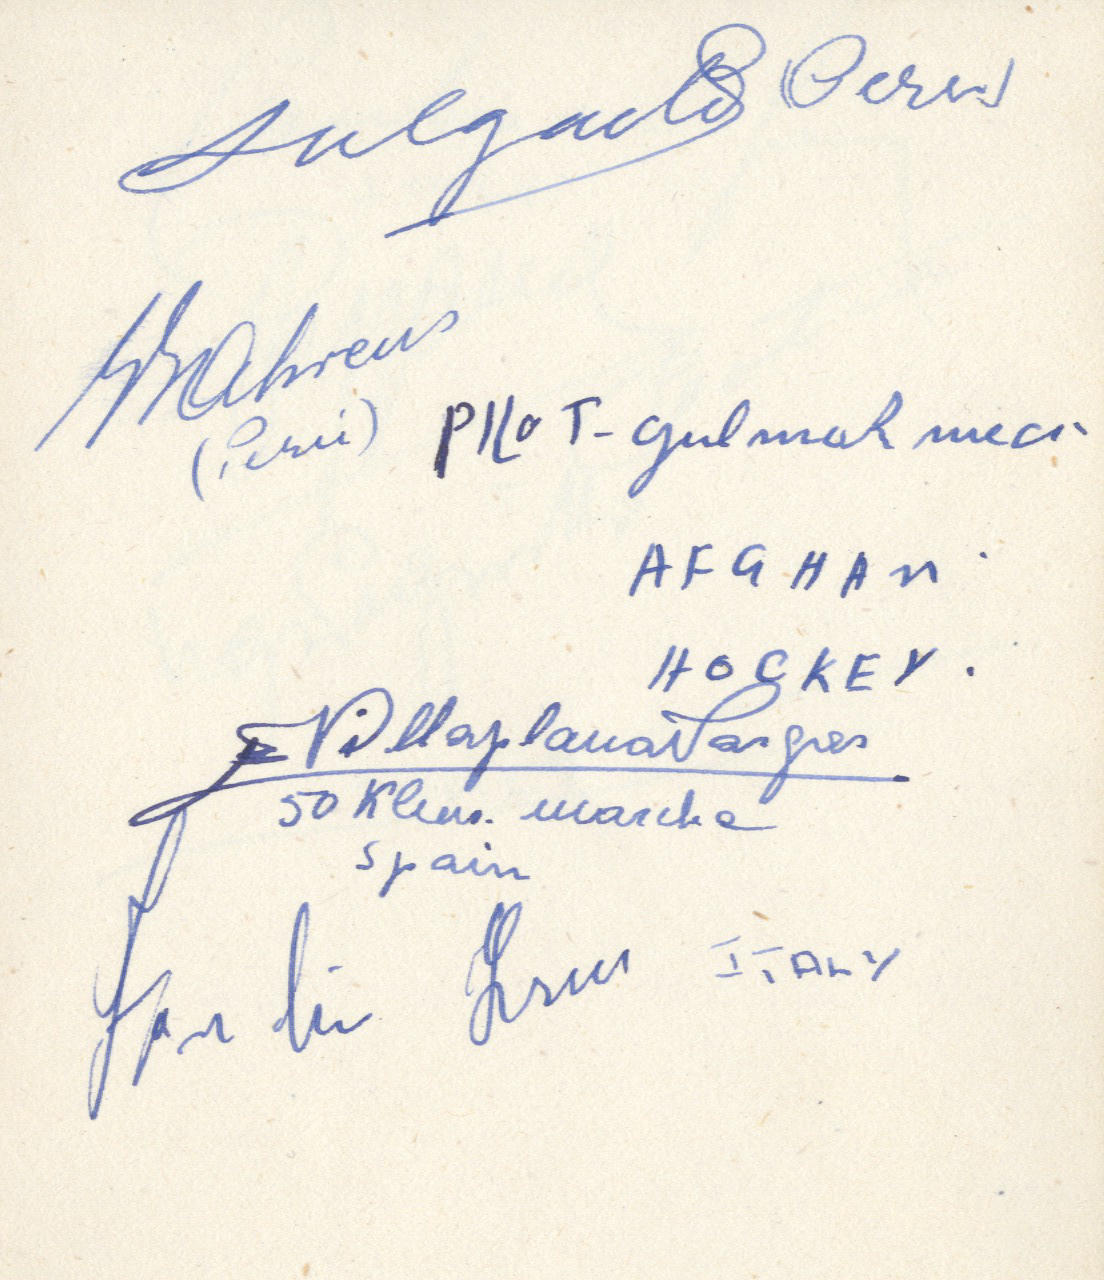 Salgado (Peru)
Ahrens
(Perú)
PILOT - gulmah meci
AFGHAN
HOCKEY.
Villaplana Vargas
50 Klms. marcha
Spain
ITALY